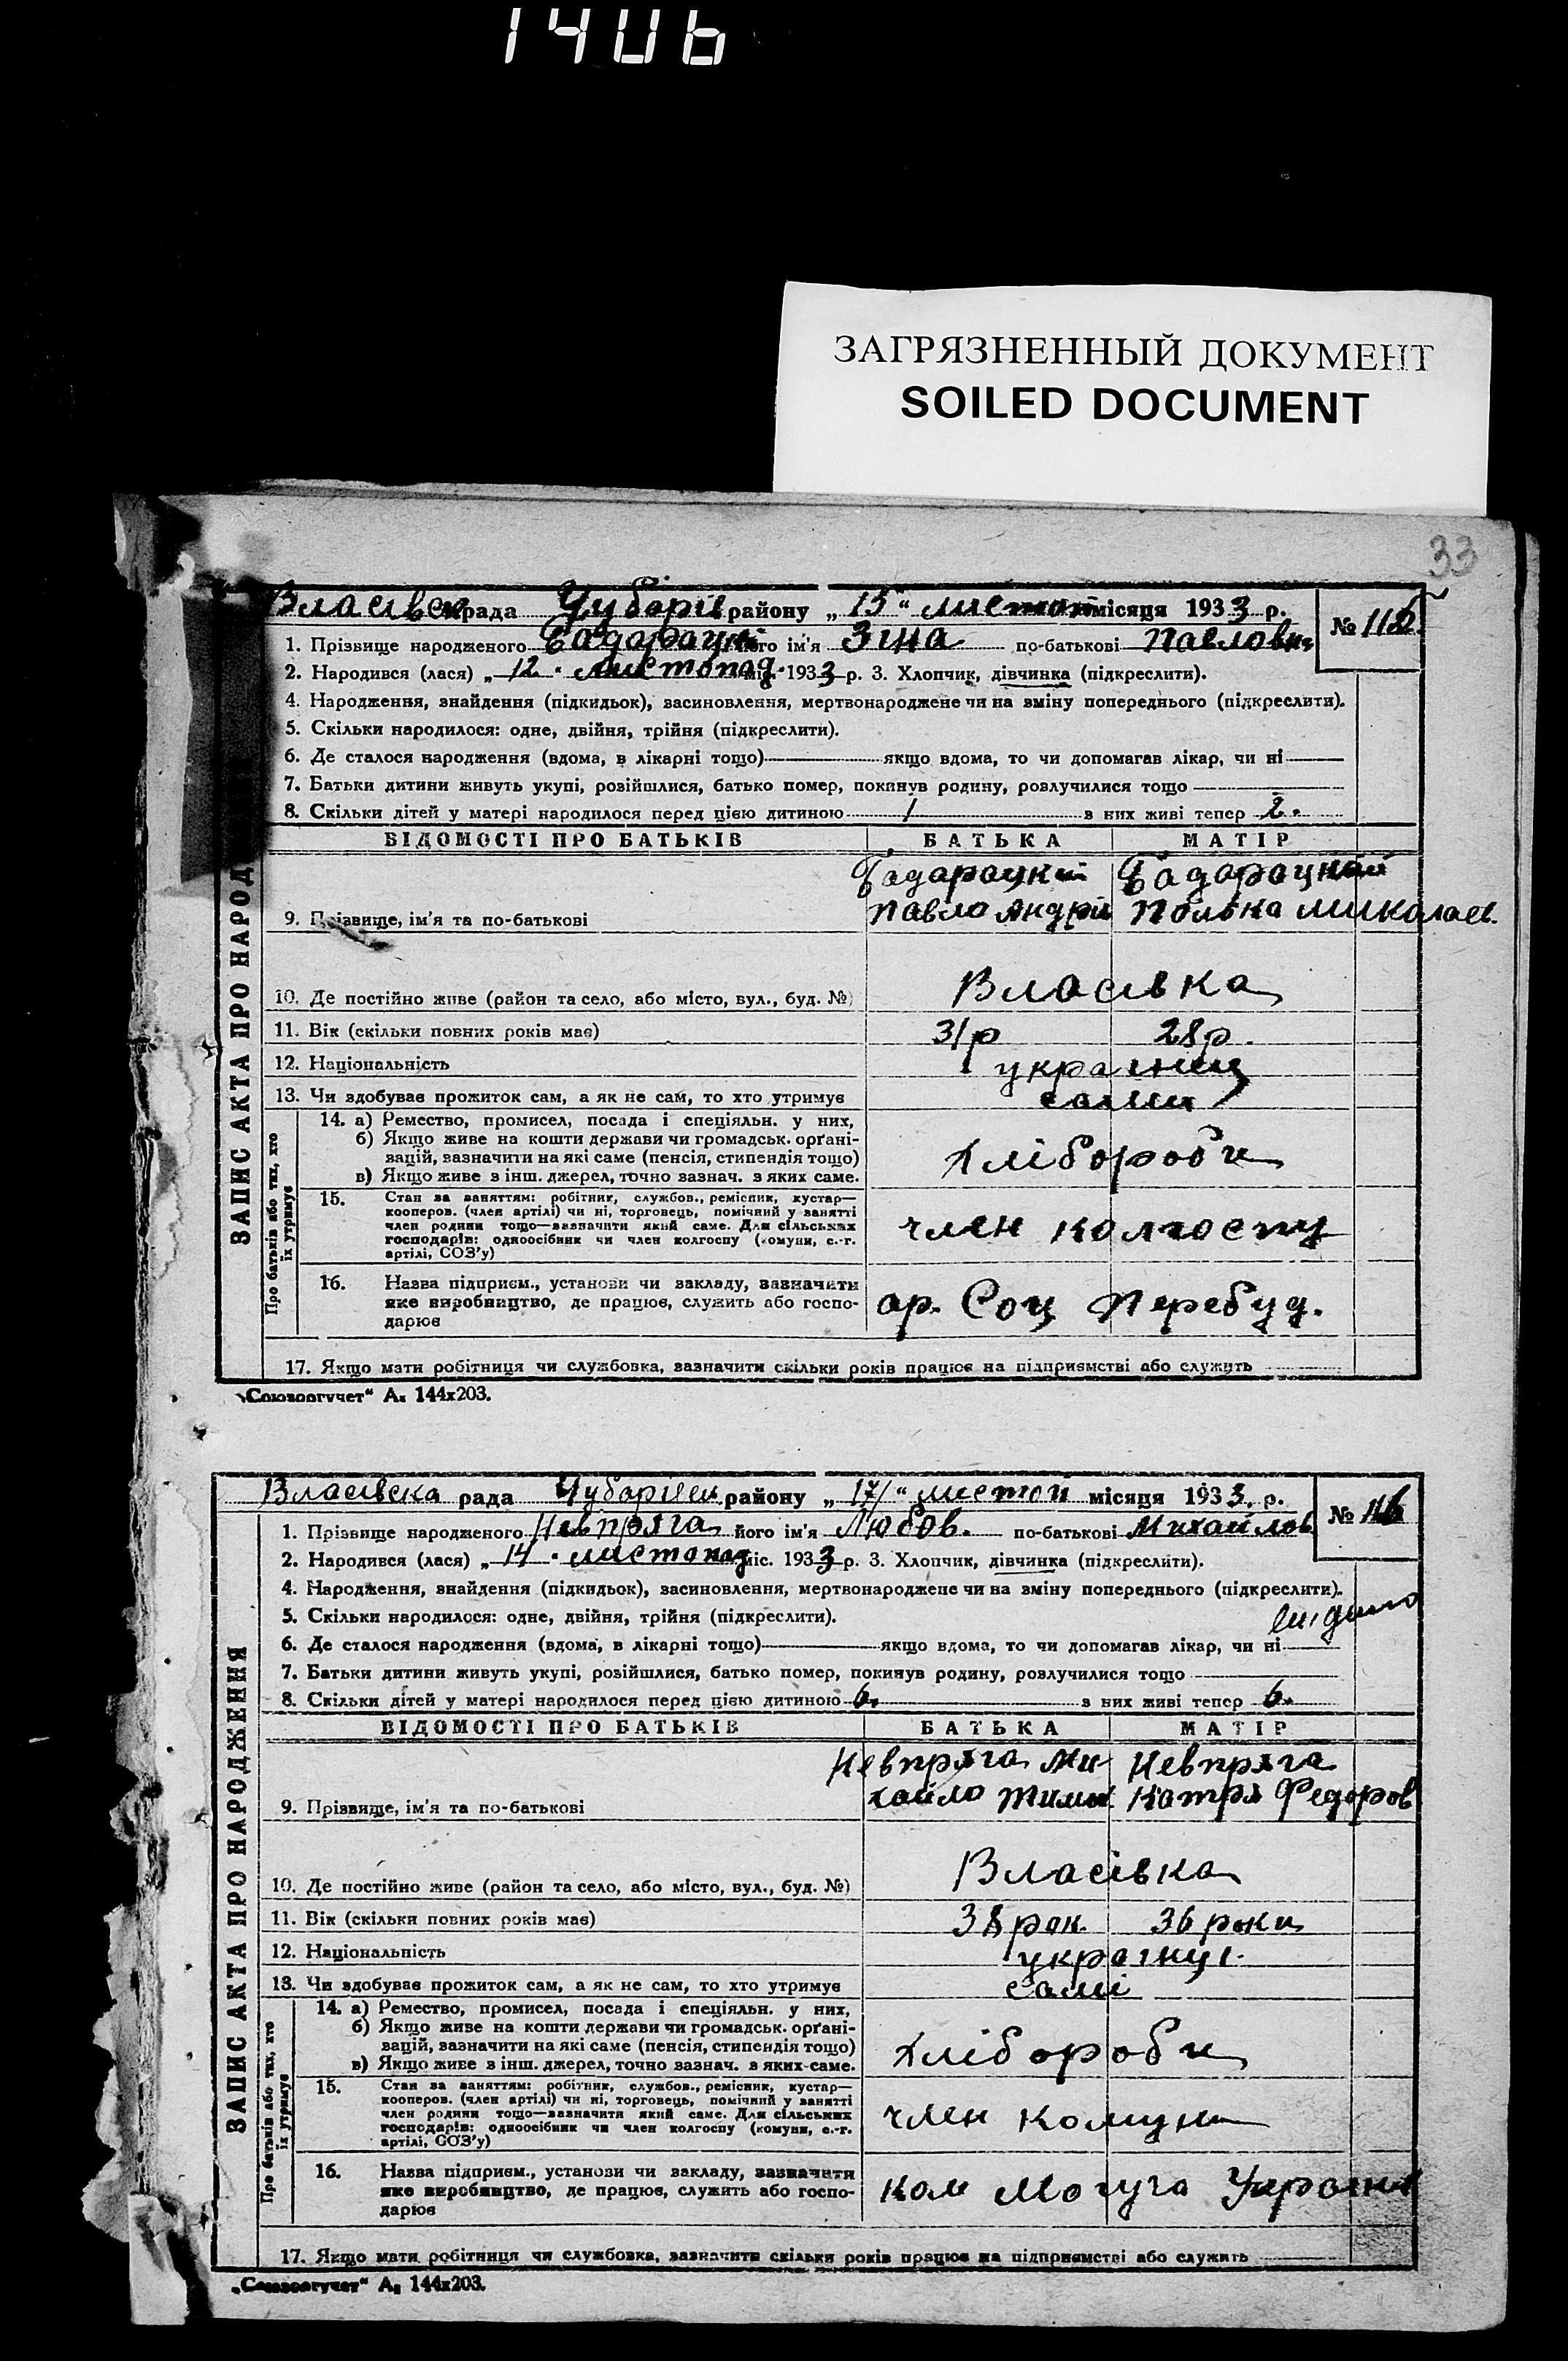 1406
ЗАГРЯЗНЕННЫЙ ДОКУМЕНТ
SOILED DOCUMENT
33
Власівська рада Чубарів району „15“ листоп місяця 1933 р.
№ 115
1. Прізвище народженого його ім'я Зіна по-батькові Павловн
2. Народився (лася) „12. листопад міс. 1933 р. 3. Хлопчик, дівчинка (підкреслити).
4. Народження, знайдення (підкидьок), засиновлення, мертвонароджене чи на зміну попереднього (підкреслити).
5. Скільки народилося: одне, двійня, трійня (підкреслити).
6. Де сталося народження (вдома, в лікарні тощо) якщо вдома, то чи допомагав лікар, чи ні
7. Батьки дитини живуть укупі, розійшлися, батько помер, покинув родину, розлучилися тощо
8. Скільки дітей у матері народилося перед цією дитиною 1 з них живі тепер 2.
ВІДОМОСТІ ПРО БАТЬКІВ БАТЬКА МАТІР
Бадарацкий Бадарацкий
9. Прізвище, ім'я та по-батькові Павло Андрій Полька Миколаев.
10. Де постійно живе (район та село, або місто, вул., буд. №) Власівка
11. Вік (скільки повних років має) 31 р 28 р.
12. Національність українці
13. Чи здобуває прожиток сам, а як не сам, то хто утримує сами
14. а) Ремество, промисел, посада і спеціяльн. у них,
б) Якщо живе на кошти держави чи громадськ. орґані-
зацій, зазначити на які саме (пенсія, стипендія тощо)
в) Якщо живе з інш. джерел, точно зазнач. з яких саме.
Хлібороби
15. Стан за заняттям: робітник, службов., ремісник, кустар—
кооперов. (член артілі) чи ні, торговець, помічний у занятті
член родини тощо—зазначити який саме. Для сільських
господарів: одноосібник чи член колгоспу (комуни, с.-г.
артілі, СОЗ'у)
член колгоспу
16. Назва підприєм., установи чи закладу, зазначити
яке виробництво, де працює, служить або госпо-
дарює
ар. Соц Перебуд.
17. Якщо мати робітниця чи службовка, зазначити скільки років працює на підприємстві або служить
ЗАПИС АКТА ПРО НАРОД
Про батьків або тих, хто
їх утримує
„Союзоргучет“ А₅ 144x203.
Власівська рада Чубарівсь району „17“ листоп місяця 1933 р.
№ 116
1. Прізвище народженого Невпряга його ім'я Любов. по-батькові Михайлов
2. Народився (лася) „14. листопад міс. 1933 р. 3. Хлопчик, дівчинка (підкреслити).
4. Народження, знайдення (підкидьок), засиновлення, мертвонароджене чи на зміну попереднього (підкреслити).
5. Скільки народилося: одне, двійня, трійня (підкреслити).
6. Де сталося народження (вдома, в лікарні тощо) якщо вдома, то чи допомагав лікар, чи ні
7. Батьки дитини живуть укупі, розійшлися, батько помер, покинув родину, розлучилися тощо
8. Скільки дітей у матері народилося перед цією дитиною 6. з них живі тепер 6.
ВІДОМОСТІ ПРО БАТЬКІВ БАТЬКА МАТІР
Невпряга Ми- Невпряга
9. Прізвище, ім'я та по-батькові хайло Тимох Катря Федоров
10. Де постійно живе (район та село, або місто, вул., буд. №) Власівка
11. Вік (скільки повних років має) 38 рок. 36 роки
12. Національність українці.
13. Чи здобуває прожиток сам, а як не сам, то хто утримує самі
14. а) Ремество, промисел, посада і спеціяльн. у них,
б) Якщо живе на кошти держави чи громадськ. орґані-
зацій, зазначити на які саме (пенсія, стипендія тощо)
в) Якщо живе з інш. джерел, точно зазнач. з яких саме.
Хлібороби
15. Стан за заняттям: робітник, службов., ремісник, кустар—
кооперов. (член артілі) чи ні, торговець, помічний у занятті
член родини тощо—зазначити який саме. Для сільських
господарів: одноосібник чи член колгоспу (комуни, с.-г.
артілі, СОЗ'у)
член комуни
16. Назва підприєм., установи чи закладу, зазначити
яке виробництво, де працює, служить або госпо-
дарює
ком Могуча Україна
17. Якщо мати робітниця чи службовка, зазначити скільки років працює на підприємстві або служить
ЗАПИС АКТА ПРО НАРОДЖЕННЯ
Про батьків або тих, хто
їх утримує
„Союзоргучет“ А₅ 144x203.